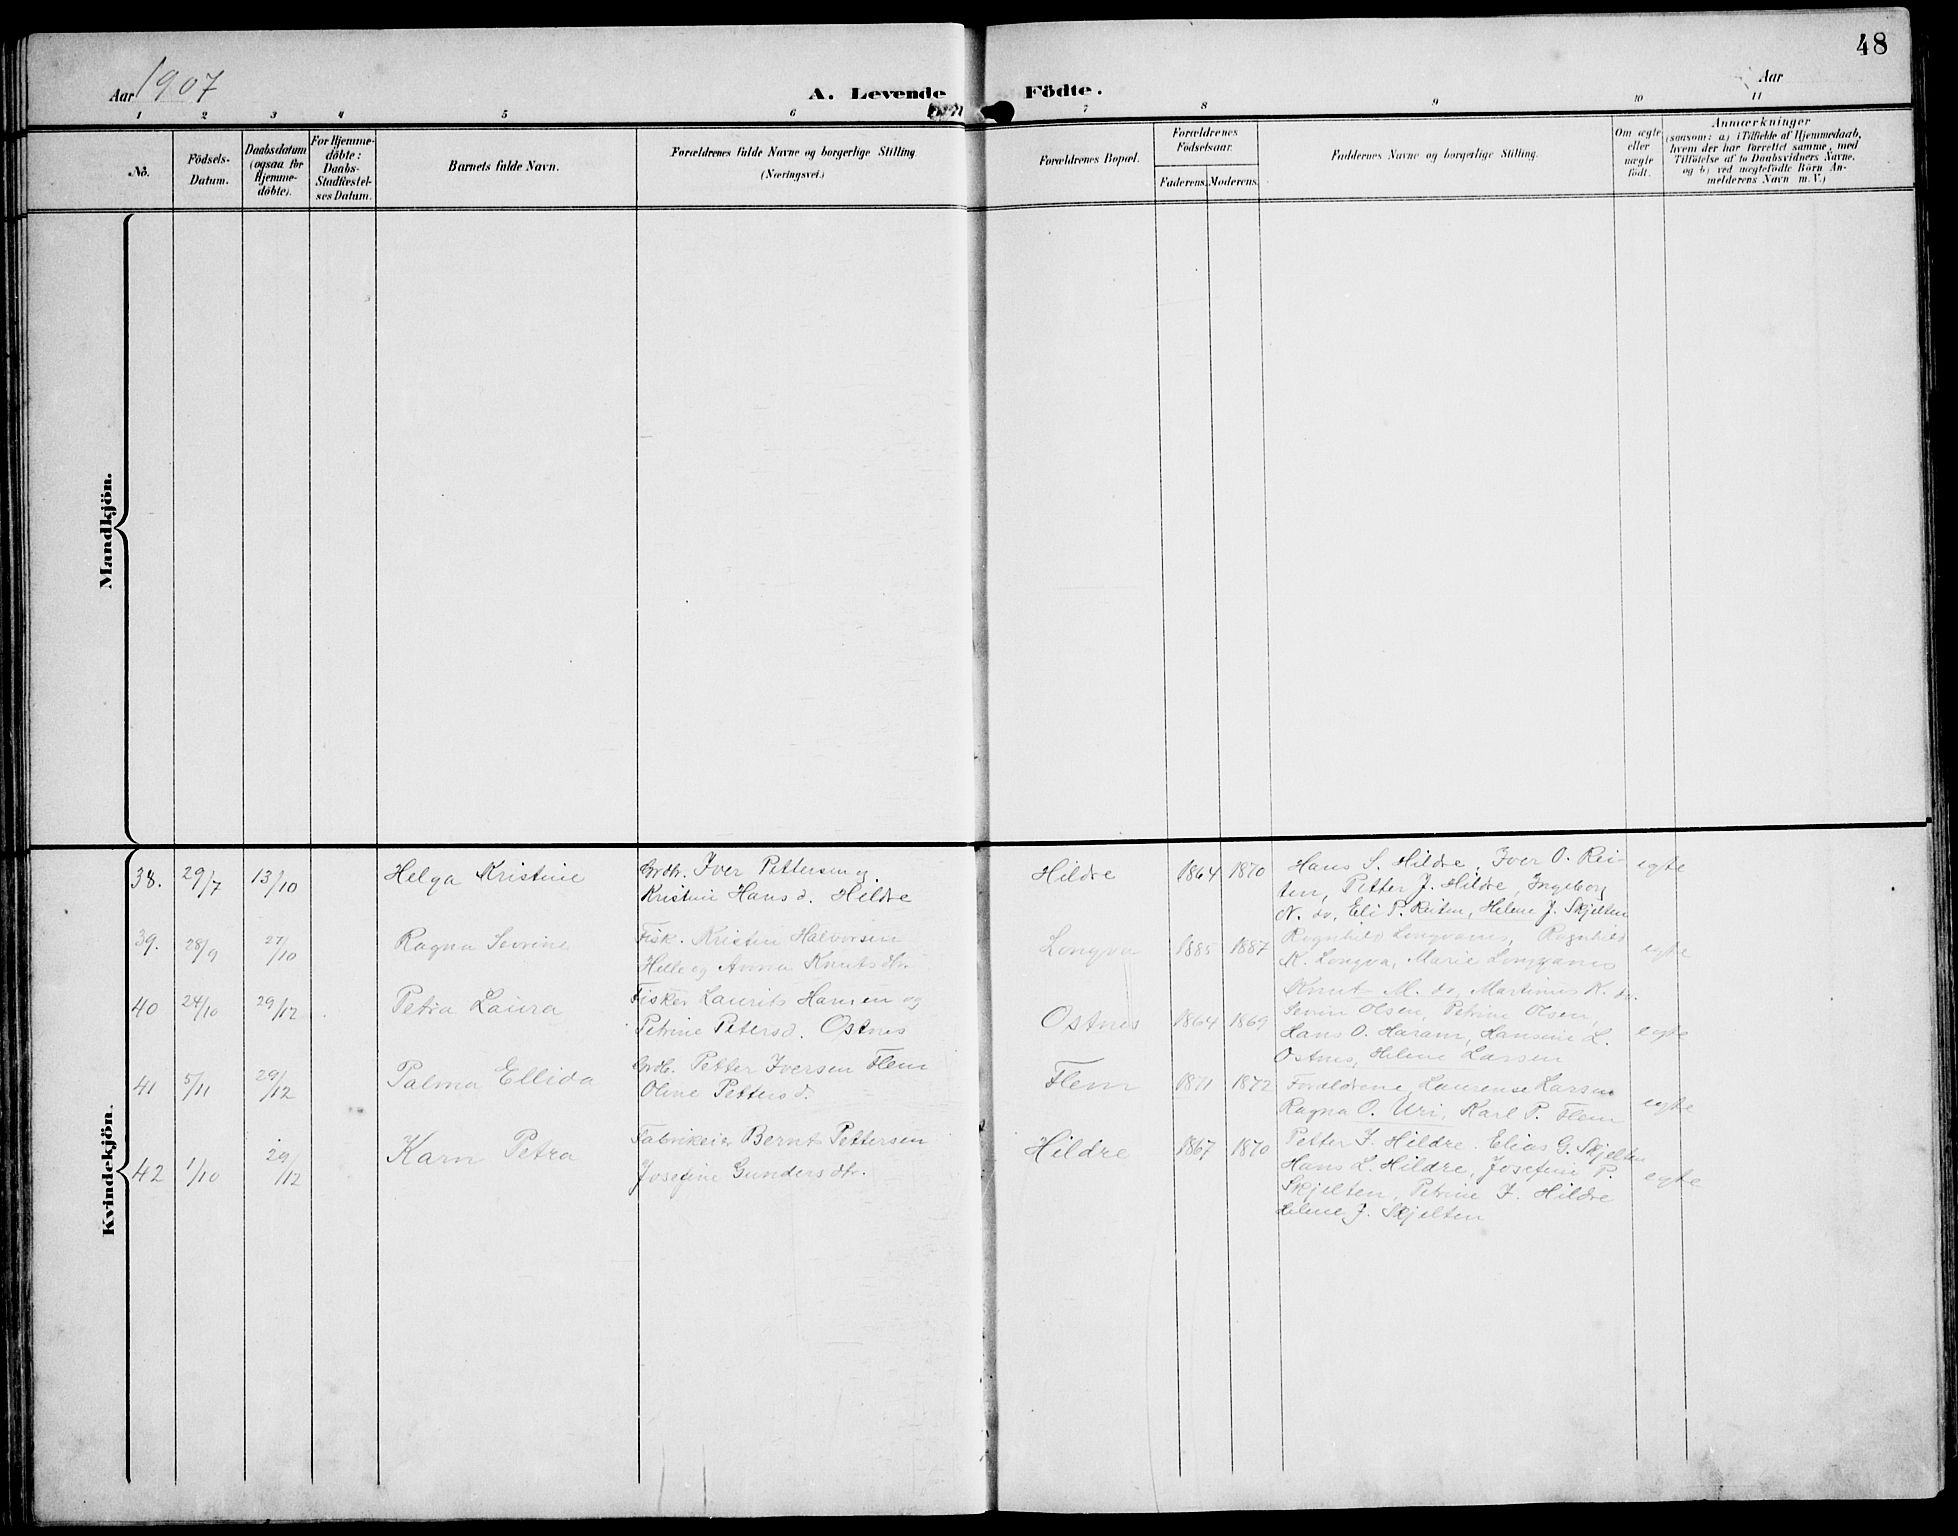 48
Aar 1907 A. Levende Födte. Aar
1 2 3 4 5 6 7 8 9 10 11
No.
Födsels-
Datum.
Daabsdatum
(ogsaa for
Hjemme-
döbte).
For Hjemme-
döbte:
Daabs-
Stadfestel-
ses Datum.
Barnets fulde Navn.
Forældrenes fulde Navne og borgerlige Stilling
(Næringsvei.)
Forældrenes Bopæl.
Forældrenes
Födselsaar.
Faderens. Moderens.
Faddernes Navne og borgerlige Stilling.
Om ægte
eller
uægte
født.
Anmærkninger
(saasom: a) i Tilfælde af Hjemmedaab,
hvem der har forrettet samme, med
Tilföielse af to Daabsvidners Navne.
og b) ved uægtefödte Börn An-
melderens Navn m. V.)
Mandkjön.
Kvindekjön.
38. 29/7 13/10 Helga Kristine
Grdbr. Iver Pettersen og
Kristine Hansd. Hildre
Hildre 1864 1870
Hans S. Hildre, Iver O. Rei-
ten, Petter J. Hildre, Ingeborg
N. do, Eli P. Reiten, Helene J. Skjelten
egte
39. 28/9 27/10 Ragna Sevrine
Fisk. Kristen Halvorsen
Helle og Anna Knutsdtr.
Longva 1885 1887
Ragnhild Longvanes, Ragnhild
K. Longva, Marie Longvanes
Knut M. do, Martinus K. do.
egte
40 24/10 29/12 Petra Laura
Fisker Laurits Hansen og
Petrine Petersd. Ostnes
Ostnes 1864 1869
Sevrin Olsen, Petrine Olsen,
Hans O. Haram, Hansine L.
Ostnes, Helene Larsen
egte
41 5/11 29/12 Palma Ellida
Grdb. Petter Iversen Flem
Oline Pettersd.
Flem 1871 1872
Foreldrene, Laurense Larsen
Ragna O. Uri, Karl P. Flem
egte
42 1/10 29/12 Karn Petra
Fabrikeier Bernt Pettersen
Josefine Gundersdtr.
Hildre 1867 1870
Petter I. Hildre. Elias G. Skjelten
Hans L. Hildre, Josefine P.
Skjelten, Petrine I. Hildre
Helene J. Skjelten
egte